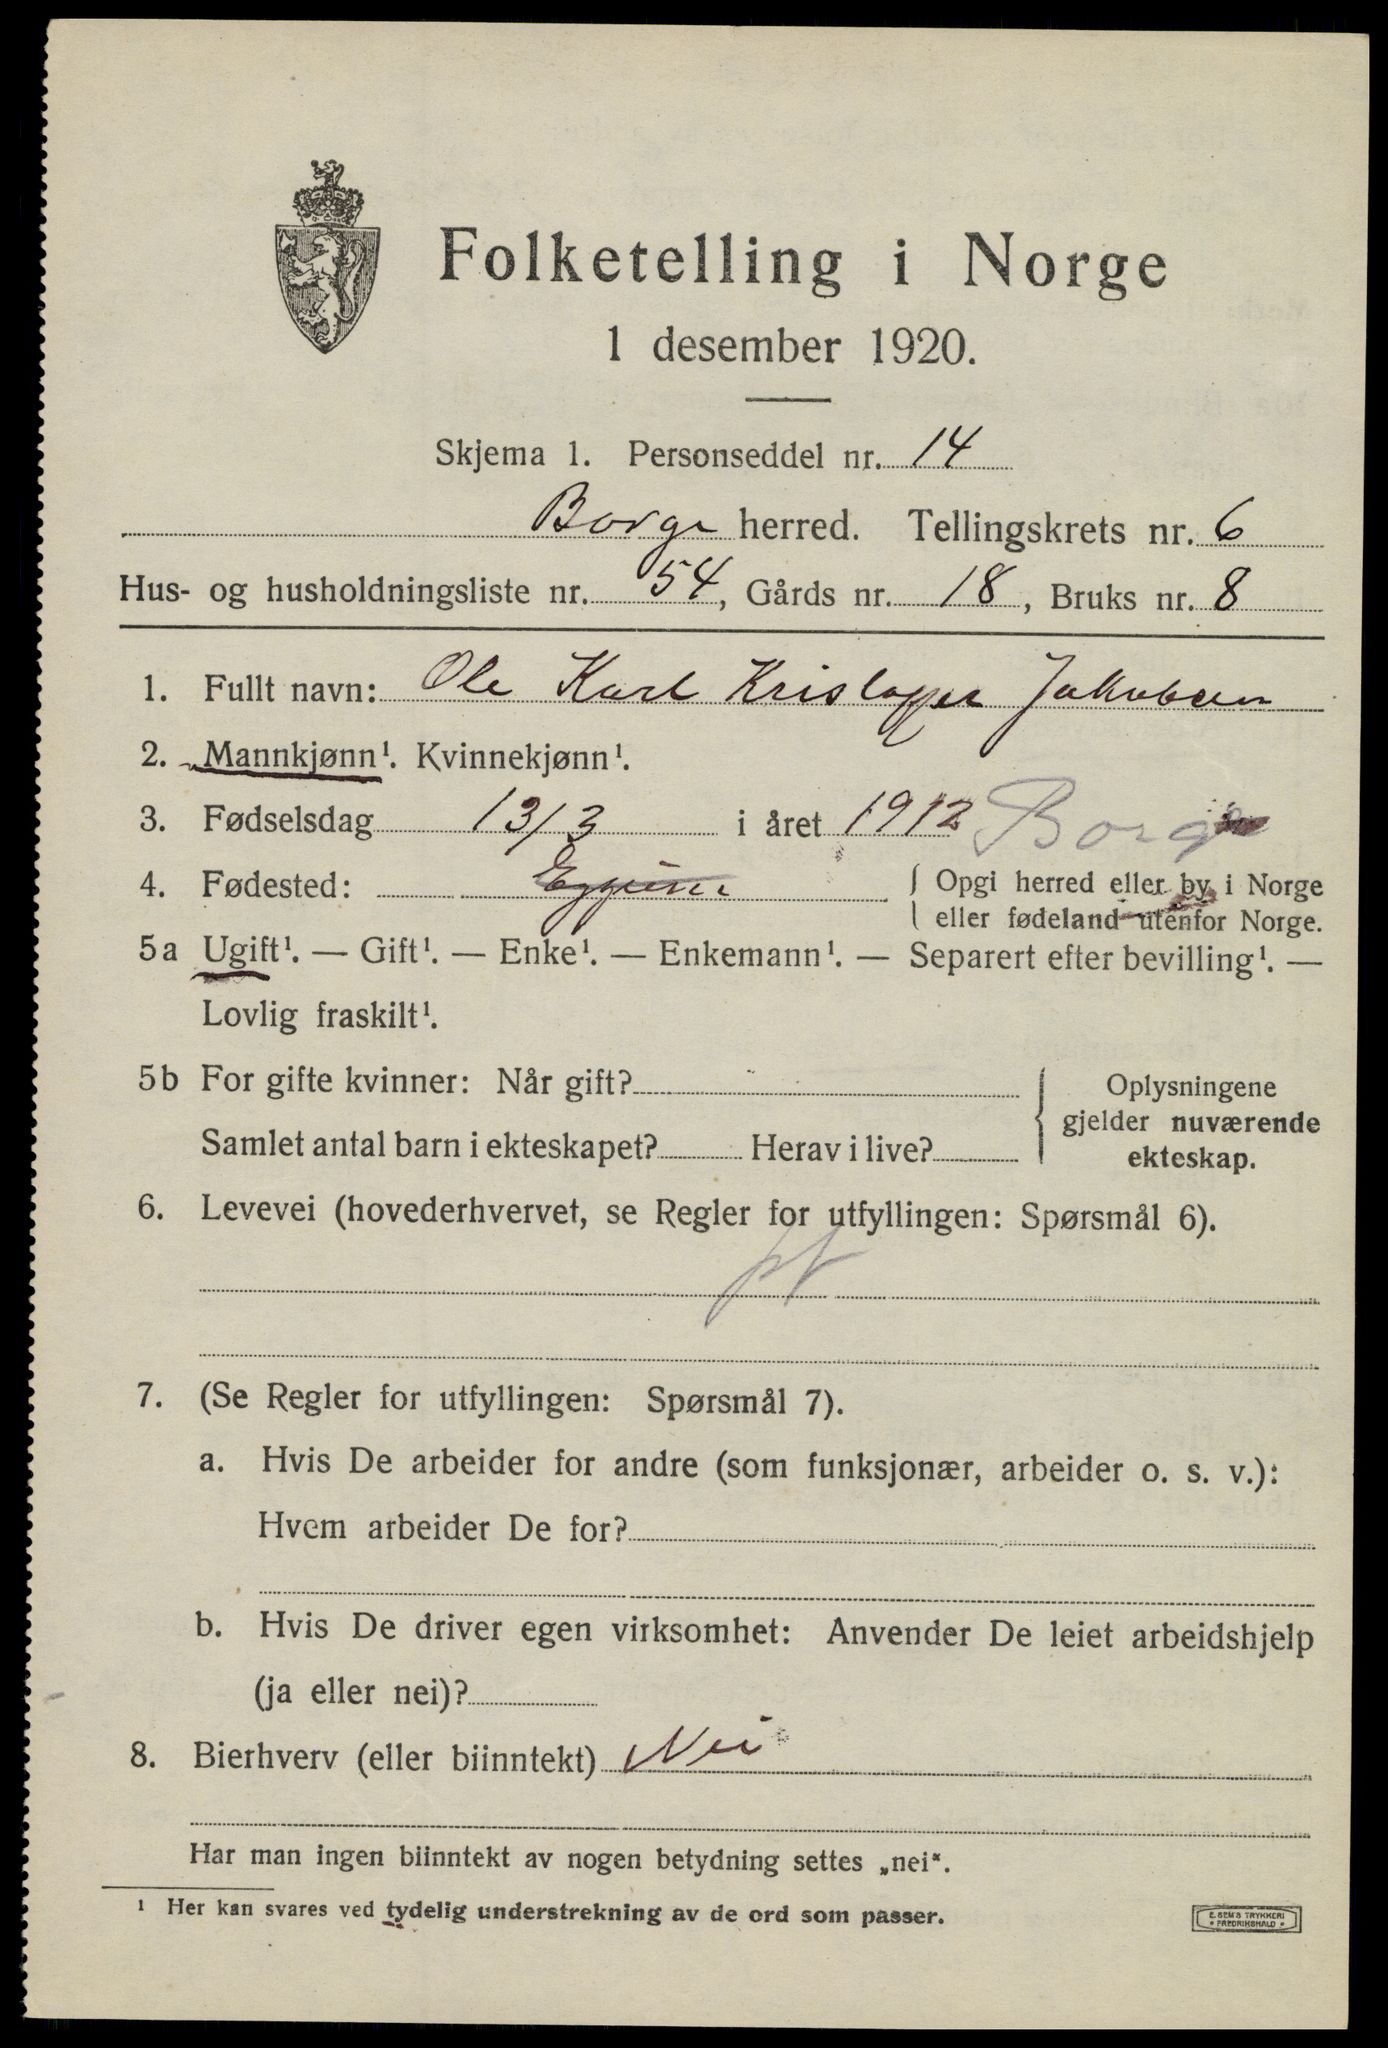 Folketelling i Norge
1 desember 1920.
Skjema 1. Personseddel nr. 14
Borge herred. Tellingskrets nr. 6
Hus- og husholdningsliste nr. 54, Gårds nr. 18, Bruks nr. 8
1. Fullt navn: Ole Karl Kristoffer Jakobsen
2. Mannkjønn¹. Kvinnekjønn¹.
3. Fødselsdag 13/3 i året 1912 Borge
4. Fødested: Eggum { Opgi herred eller by i Norge
eller fødeland utenfor Norge.
5a Ugift¹. — Gift¹. — Enke¹. — Enkemann¹. — Separert efter bevilling¹. —
Lovlig fraskilt¹.
5b For gifte kvinner: Når gift?
Samlet antal barn i ekteskapet? Herav i live?
{ Oplysningene
gjelder nuværende
ekteskap.
6. Levevei (hovederhvervet, se Regler for utfyllingen: Spørsmål 6).
7. (Se Regler for utfyllingen: Spørsmål 7).
a. Hvis De arbeider for andre (som funksjonær, arbeider o. s. v.):
Hvem arbeider De for?
b. Hvis De driver egen virksomhet: Anvender De leiet arbeidshjelp
(ja eller nei)?
8. Bierhverv (eller biinntekt) Nei
Har man ingen biinntekt av nogen betydning settes „nei“.
¹ Her kan svares ved tydelig understrekning av de ord som passer.
E. SEM'S TRYKKERI
• FREDRIKSHALD •